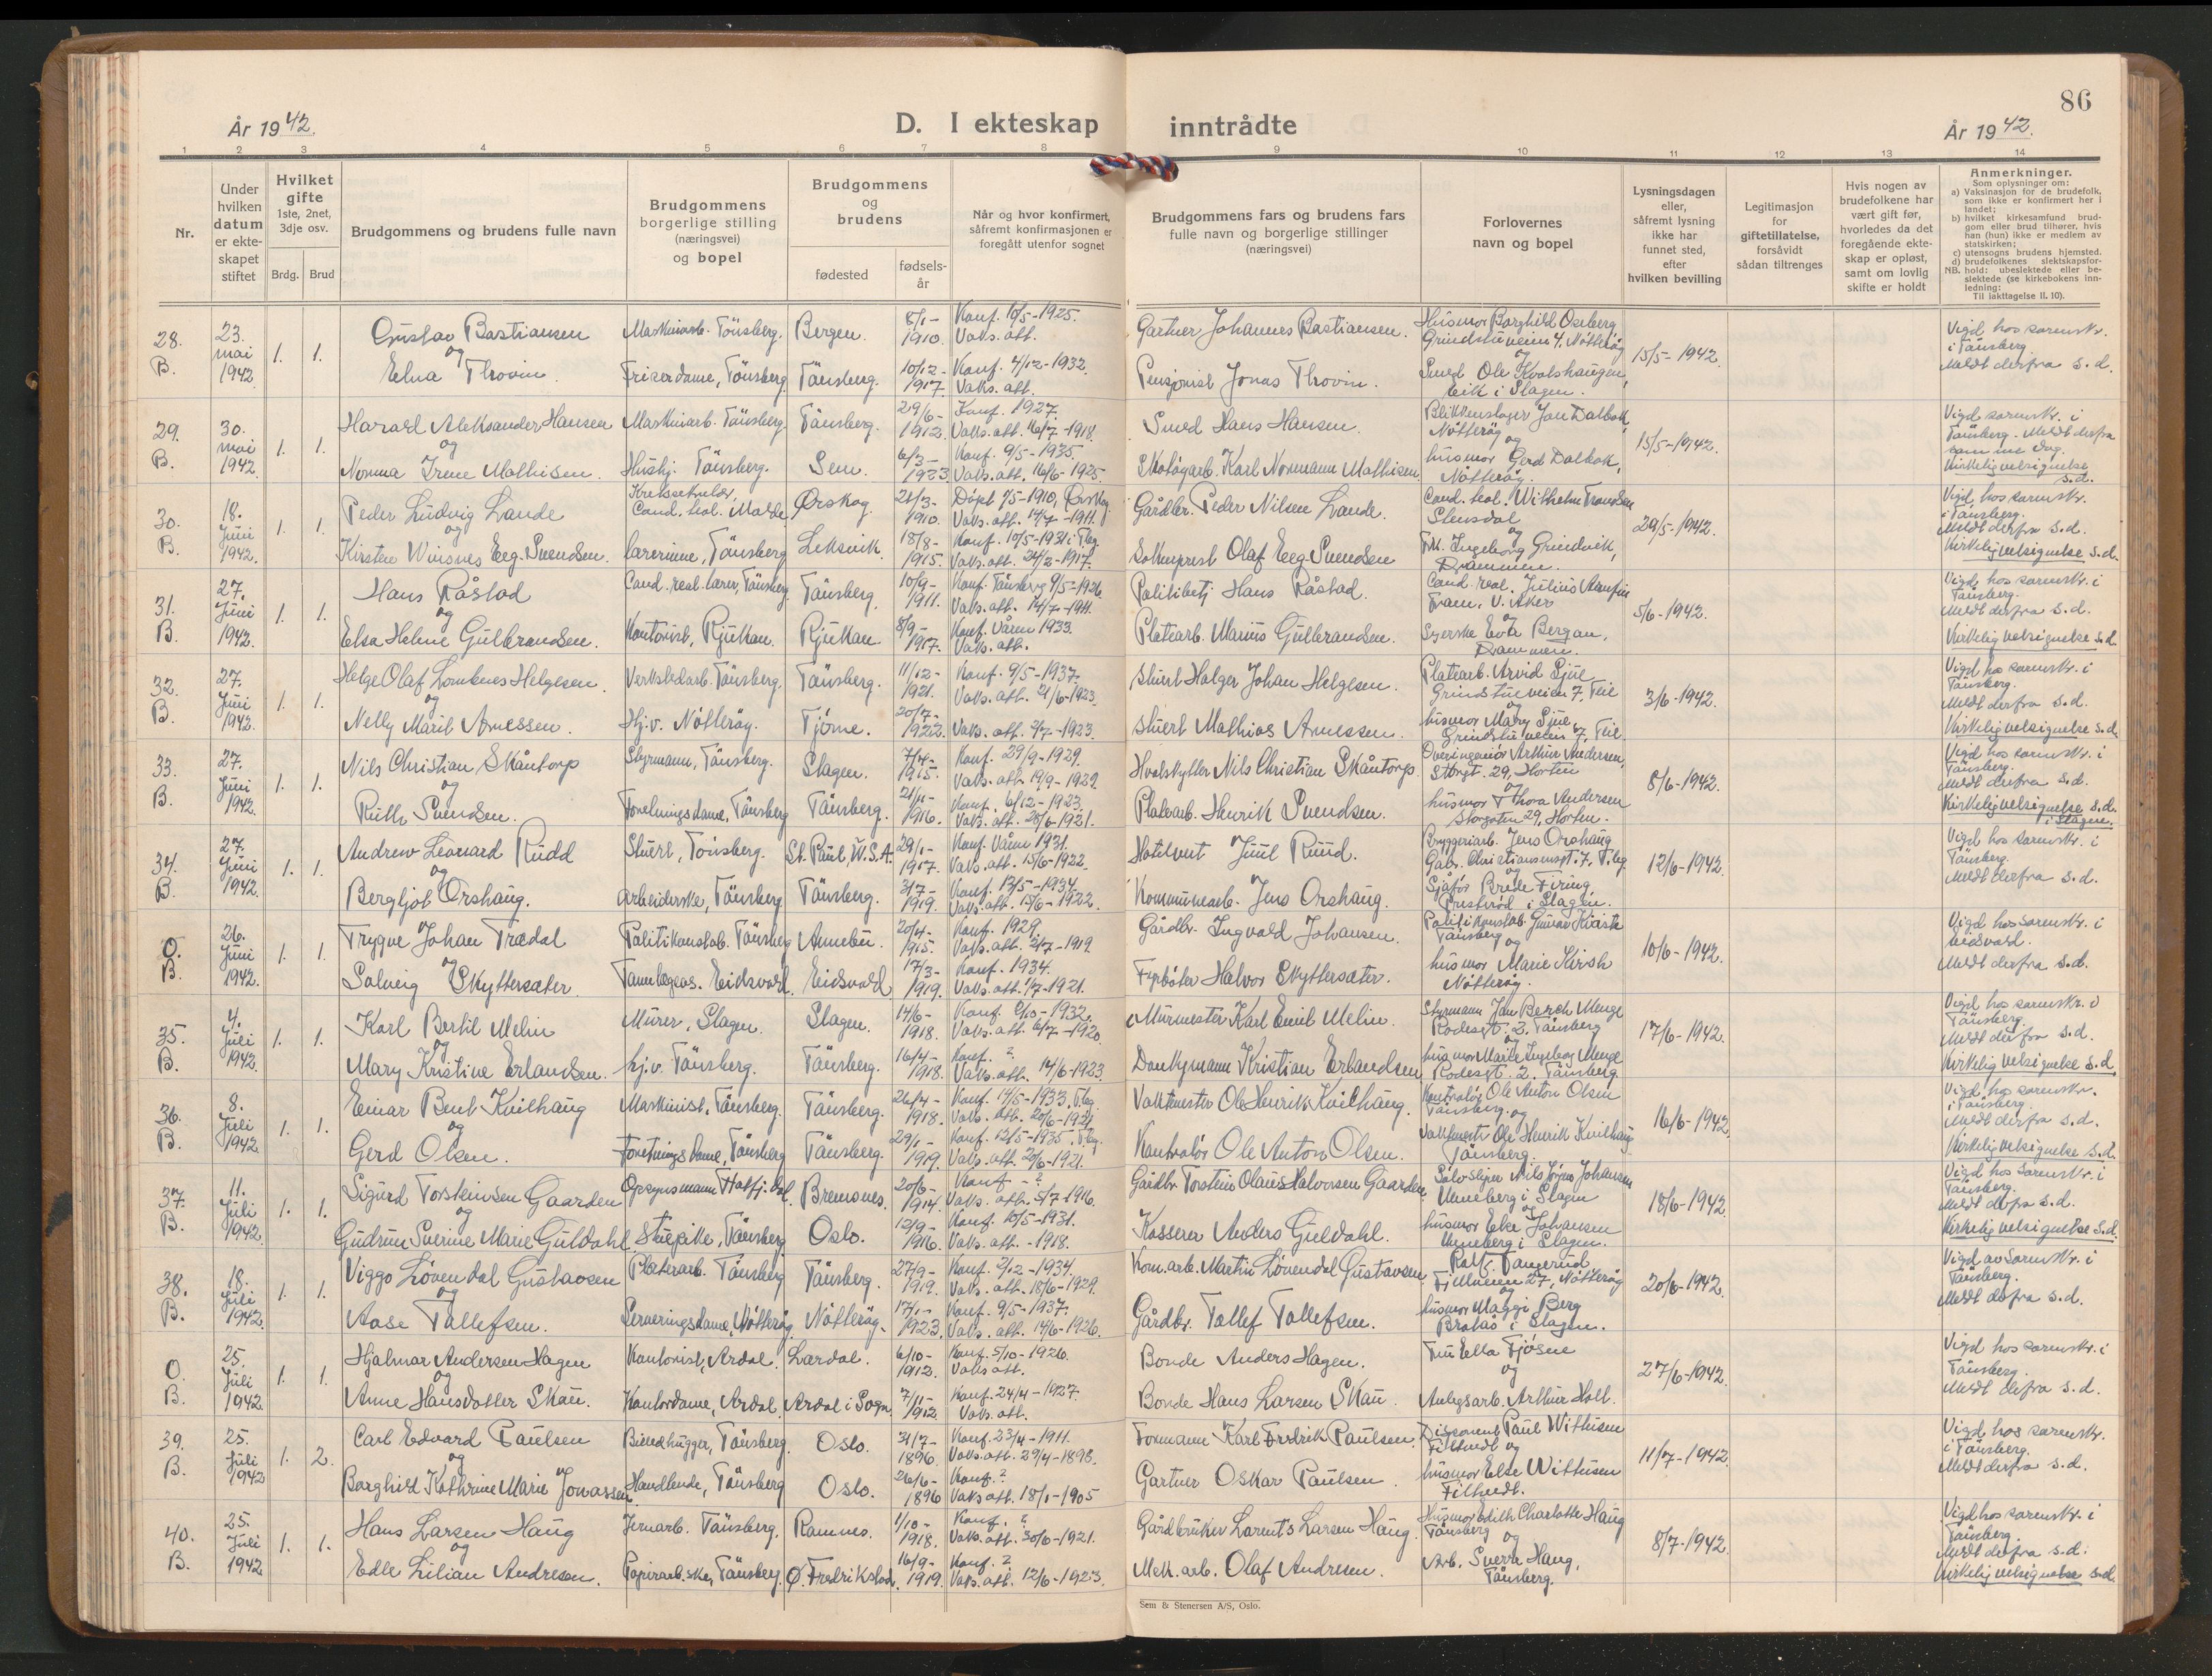 86
År 1942.
D. I ekteskap inntrådte
År 1942.
1 2 3 4 5 6 7 8 9 10 11 12 13 14
Nr.
Under hvilken datum er ekteskapet stiftet
Hvilket gifte 1ste, 2net, 3dje osv.
Brdg. Brud
Brudgommens og brudens fulle navn
Brudgommens borgerlige stilling (næringsvei) og bopel
Brudgommens og brudens
fødested
fødsels-år
Når og hvor konfirmert, såfremt konfirmasjonen er foregått utenfor sognet
Brudgommens fars og brudens fars fulle navn og borgerlige stillinger (næringsvei)
Forlovernes navn og bopel
Lysningsdagen eller, såfremt lysning ikke har funnet sted, efter hvilken bevilling
Legitimasjon for giftetillatelse, forsåvidt sådan tiltrenges
Hvis nogen av brudefolkene har vært gift før, hvorledes da det foregående ekteskap er opløst, samt om lovlig skifte er holdt
Anmerkninger.
Som oplysninger om:
a) Vaksinasjon for de brudefolk, som ikke er konfirmert her i landet;
b) hvilket kirkesamfund brudgom eller brud tilhører, hvis han (hun) ikke er medlem av statskirken;
c) utensogns brudens hjemsted.
d) brudefolkenes slektskapsforhold: ubeslektede eller beslektede (se kirkebokens innledning:
NB.
Til iakttagelse II. 10).
28. B. 23. mai 1942 1. 1.
Gustav Bastiansen Maskinarb. Tönsberg. Bergen. 8/1-1910. Konf. 10/5-1925. Vaks. att. Gartner Johannes Bastiansen.
og
Elna Throvin. Frisørdame, Tönsberg Tönsberg. 10/12-1917. Konf. 4/12-1932. Vaks. att. Pensjonist Jonas Throvin.
Husmor Borghild Oseberg Grindstuveien 4. Nötteröy og Smed Ole Kvolshaugen, Eik i Slagen.
15/5-1942.
Vigd hos sorenskr. i Tönsberg Meldt derfra s.d.
29. B. 30. mai 1942 1. 1.
Harald Aleksander Hansen Maskinarb. Tönsberg. Tönsberg. 29/6-1912. Konf. 1927. Vaks. att. 16/7-1918. Smed Hans Hansen.
og
Norma Irene Mathisen. Hushj. Tönsberg. Sem. 6/3-1923 Konf. 9/5-1935. Vaks. att. 16/6-1925. Skotøyarb. Karl Normann Mathisen
Blikkenslager Jon Dalbok, Nötteröy og husmor Gerd Dalbok, Nötteröy.
15/5-1942.
Vigd sorenskr. i Tönsberg. Meldt derfra samme dag. Kirkelig velsignelse s.d.
30. B. 18. Juni 1942. 1. 1.
Peder Ludvig Lande Kretssekretær, Cand. teol. Molde Ørskog. 21/3-1910. Döpt 7/5-1910, Ørskog. Vaks. att. 14/7-1911. Gårdbr. Peder Nilsen Lande.
og
Kirsten Winsnes Eeg-Svendsen. lærerinne, Tönsberg Leksvik. 18/8-1915. Konf. 10/5-1931 i Tbg. Vaks. att. 24/2-1917. Sokneprest Olaf Eeg Svendsen
Cand. teol. Wilhelm Frandsen Stensdal og Frk. Ingeborg Grindvik, Drammen.
29/5-1942.
Vigd hos sorenskr. i Tönsberg. Meldt derfra s.d. Kirkelig velsignelse s.d.
31. B. 27. Juni 1942. 1. 1.
Hans Råstad Cand. real. lærer, Tönsberg Tönsberg. 10/9-1911. Konf. Tönsberg 9/5-1926. Vaks. att. 14/7-1911. Politibetj Hans Råstad.
og
Elsa Helene Gulbrandsen. Kontorist, Rjukan. Rjukan 8/9-1917. Konf. Våren 1933. Vaks. att. Platearb. Marius Gulbrandsen.
Cand. real. Julius Arnfinn Fram, V. Aker og Syerske Eva Bergan, Drammen.
5/6-1942.
Vigd hos sorenskr. i Tönsberg. Meldt derfra s.d. Kirkelig velsignelse s.d.
32. B. 27. Juni 1942. 1. 1.
Helge Olaf Helgesen. Verkstedarb. Tönsberg. Tönsberg. 11/12-1921. Konf. 9/5-1937. Vaks. att. 21/6-1923. Stuert Holger Johan Helgesen.
og
Nelly Marit Arnessen. Hj.v. Nötteröy. Tjöme. 20/7-1922. Vaks. att. 2/7-1923. Stuert Mathias Arnessen.
Platearb. Arvid Sjue Grindstuveien 7, Teie og husmor Mary Sjue, Grindstuveien 7, Teie.
3/6-1942.
Vigd hos sorenskr. i Tönsberg. Meldt derfra s.d. Kirkelig velsignelse s.d.
33. B. 27. Juni 1942. 1. 1.
Nils Christian Skåntorp Styrmann, Tönsberg. Slagen. 7/4-1915. Konf. 29/9-1929. Vaks. att. 19/9-1929. Hvalskytter Nils Christian Skåntorp.
og
Ruth Svendsen. Forretningsdame, Tönsberg Tönsberg. 21/11-1916. Konf. 6/12-1923. Vaks. att. 28/6-1921. Platearb. Henrik Svendsen.
Overingeniör Arthur Andersen, Storgt. 29, Horten og husmor Thora Andersen Storgaten 29, Horten.
8/6-1942.
Vigd hos sorenskr. i Tönsberg. Meldt derfra s.d. Kirkelig velsignelse s.d. i Slagen.
34. B. 27. Juni 1942. 1. 1.
Andrew Leonard Rudd Stuert, Tönsberg. St. Paul, U.S.A. 29/1-1917. Konf. Våren 1931. Vaks. att. 15/6-1922. Hotellvert Juul Ruud.
og
Bergljot Orshaug. Arbeiderske, Tönsberg Tönsberg. 3/7-1919. Konf. 13/5-1934. Vaks. att. 15/6-1922. Kommunearb. Jens Orshaug.
Bryggeriarb. Jens Orshaug Gabr. Christiansensgt. 7, T.bg og Sjåför Brede Firing, Presterød i Slagen.
12/6-1942.
Vigd hos sorenskr. i Tönsberg. Meldt derfra s.d.
O. B. 26. Juni 1942. 1. 1.
Trygve Johan Trædal Politikonstab. Tönsberg Annebu. 20/4-1915. Konf. 1929. Vaks. att. 2/7-1919. Gårdbr. Ingvald Johansen.
og
Solveig Skyttersæter Tannlegeas. Eidsvold. Eidsvold 17/3-1919. Konf. 1934. Vaks. att. 1/7-1921. Fyrböter Halvor Skyttersæter.
Politikonstab. Gunnar Kvaste Tönsberg og husmor Marie Kirsh Nötteröy.
10/6-1942.
Vigd hos sorenskr. i Eidsvold. Meldt derfra s.d.
35. B. 4. Juli 1942. 1. 1.
Karl Bertil Melin Murer, Slagen. Slagen. 14/6-1918. Konf. 9/10-1932. Vaks. att. 6/7-1920. Murmester Karl Emil Melin.
og
Mary Kristine Erlandsen. hj.v. Tönsberg. Tönsberg. 16/4-1918. Konf. ? Vaks. att. 14/6-1923. Donkymann Kristian Erlandsen
Styrmann Jan Berch Menge Rodesgt. 2. Tönsberg og husmor Maite Ingeborg Menge Rodesgt. 2. Tönsberg.
17/6-1942.
Vigd hos sorenskr. i Tönsberg. Meldt derfra s.d. Kirkelig velsignelse s.d.
36. B. 8. Juli 1942. 1. 1.
Einar Bent Kvilhaug Maskinist, Tönsberg. Tönsberg. 26/4-1918. Konf. 14/5-1933. T.bg. Vaks. att. 20/6-1921 Vaktmester Ole Henrik Kvilhaug.
og
Gerd Olsen. Forretningsdame, Tönsberg Tönsberg. 29/1-1919. Konf. 12/5-1935. T.bg. Vaks. att. 20/6-1921. Kontrolör Ole Anton Olsen.
Kontrolör Ole Anton Olsen Tönsberg. og Vaktmestr. Ole Henrik Kvilhaug Tönsberg.
16/6-1942.
Vigd hos sorenskr. i Tönsberg. Meldt derfra s.d. Kirkelig velsignelse s.d.
37. B. 11. Juli 1942. 1. 1.
Sigurd Torsteinsen Gaarden Opsynsmann Hattfj.dal. Bremsnes. 20/6-1914. Konf - ? Vaks. att. 5/7-1916. Gårdbr Torstein Olaus Halvorsen Gaarden.
og
Gudrun Sverine Marie Guldahl. Stuepike, Tönsberg Oslo. 12/9-1916. Konf. 10/5-1931. Vaks. att. -1918. Kasserer Anders Guldahl.
Sølvsliper Nils Jörgen Johansen Unneberg i Slagen og husmor Else Johansen Unneberg i Slagen.
18/6-1942.
Vigd hos sorenskr. i Tönsberg. Meldt derfra s.d. Kirkelig velsignelse s.d.
38. B. 18. Juli 1942. 1. 1.
Viggo Lövendal Gustavsen Platearb. Tönsberg Tönsberg. 27/9-1919. Konf. 2/12-1934. Vaks. att. 18/6-1929. Kom.arb. Martin Lövendal Gustavsen.
og
Aase Tollefsen. Serveringsdame, Nötteröy. Nötteröy. 17/1-1923. Konf. 9/5-1937. Vaks. att. 14/6-1926. Gårdbr. Tollef Tollefsen.
Rolf Tangerud 27, Nötteröy og husmor Maggi Berg Bratås i Slagen.
20/6-1942.
Vigd av sorenskr. i Tönsberg. Meldt derfra s.d.
O. B. 25. Juli 1942. 1. 1.
Hjalmar Andersen Hagen Kontorist, Årdal. Lardal. 6/10-1912. Konf. 5/10-1926. Vaks att. Bonde Anders Hagen.
og
Anne Hansdotter Skau. Kontordame, Årdal. Årdal i Sogn. 7/11-1912. Konf. 24/4-1927. Vaks. att. Bonde Hans Larsen Skau.
Fru Ella Fjösne og Anlegsarb. Arthur Holt.
27/6-1942.
Vigd hos sorenskr. i Tönsberg. Meldt derfra s.d.
39. B. 25. Juli 1942 1. 2.
Carl Edvard Paulsen Billedhugger, Tönsberg. Oslo. 31/7-1896. Konf. 23/4-1911. Vaks. att. 29/4-1898. Formann Karl Fredrik Paulsen.
og
Borghild Kathrine Marie Jonassen Handlende, Tönsberg Oslo. 26/6-1896 Konf. ? Vaks att. 18/1-1905 Gartner Oskar Paulsen
Disponent Paul Withusen Filtvedt og husmor Else Withusen Filtvedt.
11/7-1942.
Vigd hos sorenskr. i Tönsberg. Meldt derfra s.d.
40. B. 25. Juli 1942 1. 1.
Hans Larsen Haug Jernarb. Tönsberg. Ramnes. 1/10-1918. Konf. ? Vaks. att. 30/6-1921. Gårdbruker Larents Larsen Haug.
og
Edle Lilian Andresen. Papirarb.ske, Tönsberg. Ø. Fredrikstad. 16/9-1919. Konf. ? Vaks. att. 12/6-1923. Mek. arb. Olaf Andresen.
Husmor Edith Charlotte Haug Tönsberg og Arb. Sverre Haug, Tönsberg.
8/7-1942.
Vigd hos sorenskr. i Tönsberg. Meldt derfra s.d. Kirkelig velsignelse s.d.
Sem & Stenersen A/S, Oslo.